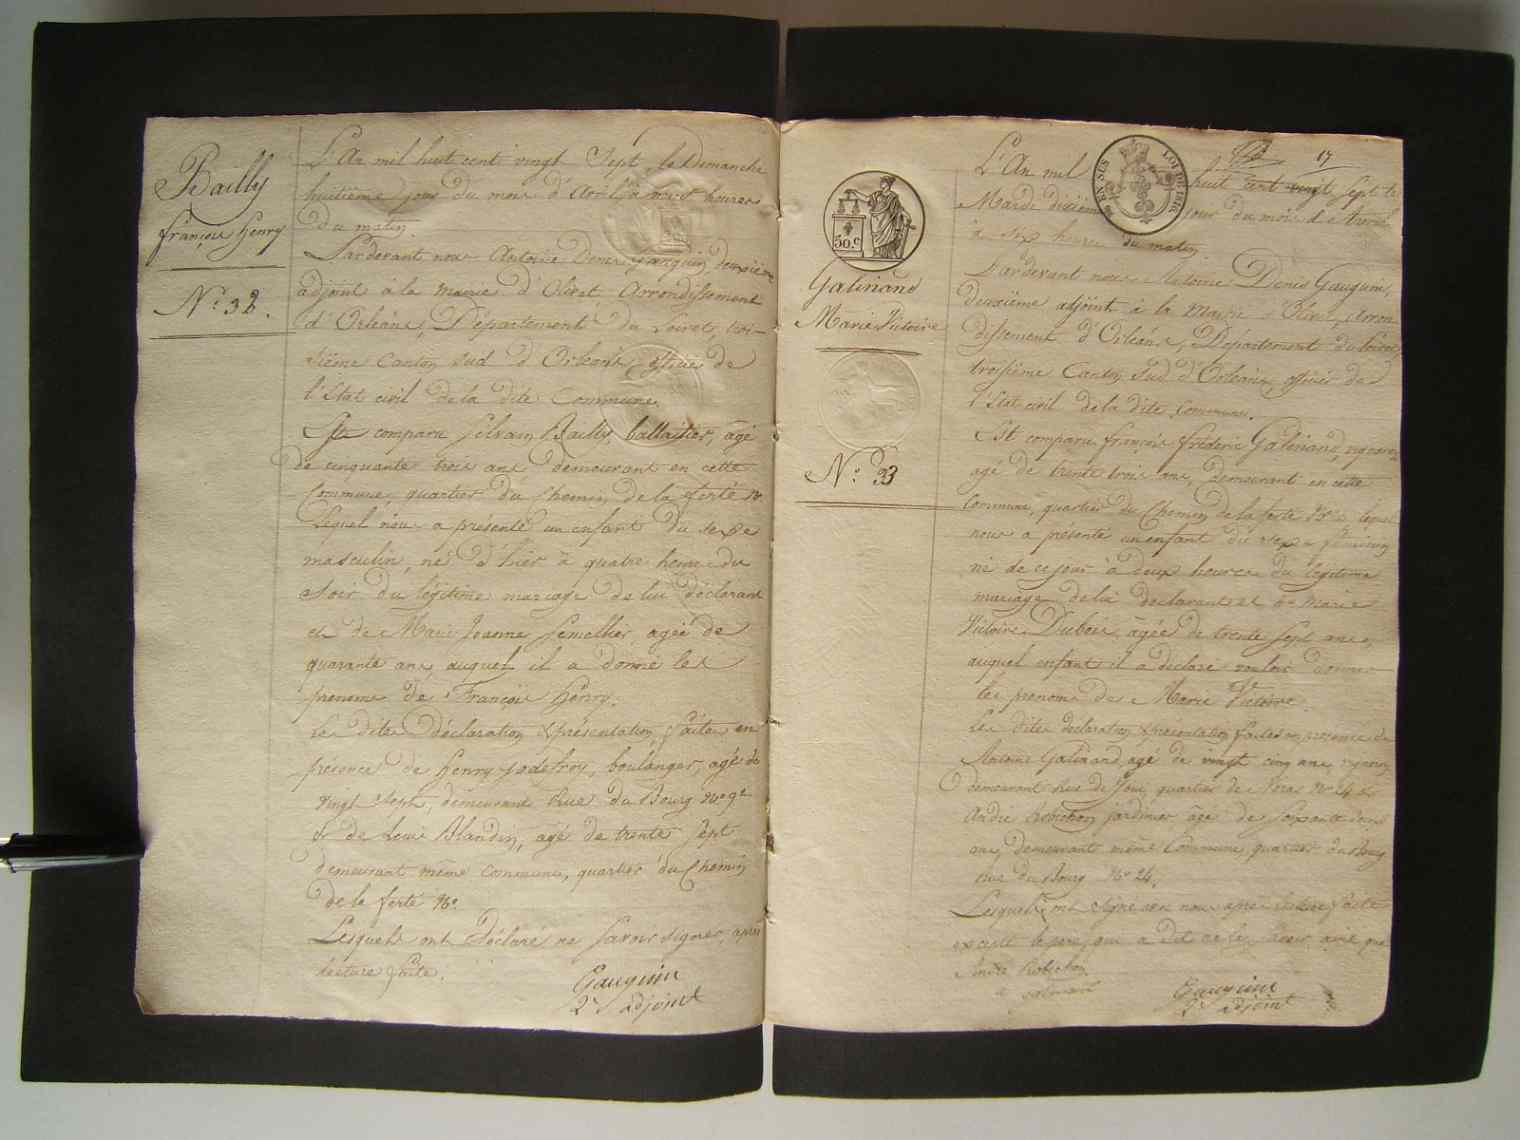 Bailly
françois henry
N.º 32.
L'An mil huit cent vingt Sept, le Dimanche
huitiême jour du mois d'Avril à neuf heures
Du matin.
Pardevant nous Antoine Denis Gauguin deuxiême
adjoint à la mairie d'Olivet, Arrondissement
d'Orléans, Département du Loiret, troi-
siême Canton Sud d'Orléans, officier de
l'Etat civil de la dite Commune.
Est comparu Silvain Bailly, ballaitier, âgé
de cinquante trois ans demeurant en cette
Commune, quartier du Chemin de la ferté Nº
Lequel nous a présenté un enfant du sexe
masculin, né d'hier à quatre heures du
Soir du légitime mariage de lui déclarant
et de Marie Jeanne Semellier, agée de
quarante ans, auquel il a donné les
prenoms de François henry.
Les dites Déclaration & présentation faites en
présence de henry Godefroy, boulanger, agé de
vingt Sept, demeurant Rue du Bourg Nº 9
& de Louis Blandin, agé de trente Sept
demeurant même Commune, quartier du Chemin
De la ferté Nº
Lesquels ont Déclaré ne Savoir Signer, après
lecture faite.
Gauguin
2e adjoint
17
EN SUS
LOI DE 1816
30.c
Galinand
Marie Victoire
N.º 33
L'An mil huit cent vingt Sept le
Mardi dixiême jour du mois d'Avril
à six heures du matin
Pardevant nous Antoine Denis Gauguin,
deuxiême adjoint à la Mairie d'Olivet, Arron
dissement d'Orléans, Département du Loiret,
troisiême Canton Sud d'Orléans, officier de
l'Etat civil de la dite Commune.
Est comparu françois frédéric Galinand, vigneron
agé de trente trois ans, demeurant en cette
Commune, quartier du Chemin de la ferté Nº lequel
nous a présenté un enfant du sexe féminin
né de ce jour à deux heures du légitime
mariage de lui declarant et de Marie
Victoire Dubois, âgée de trente Sept ans,
auquel enfant il a déclaré vouloir donner
les prenoms de Marie Victoire.
Les dites declaration & présentation faites en présence de
Antoine Galinand, agé de vingt cinq ans, vigneron
demeurant Rue de Joui, quartier de Nº 24 &
André Robichon jardinier, âgé de soixante
ans, demeurant même Commune, quartier du Bourg
Rue du Bourg Nº 24.
Lesquels ont Signé avec nous après lecture faite
excepté le père, qui a dit ne le Savoir, ainsi que
André Robichon
Galinand
Gauguin
2e adjoint